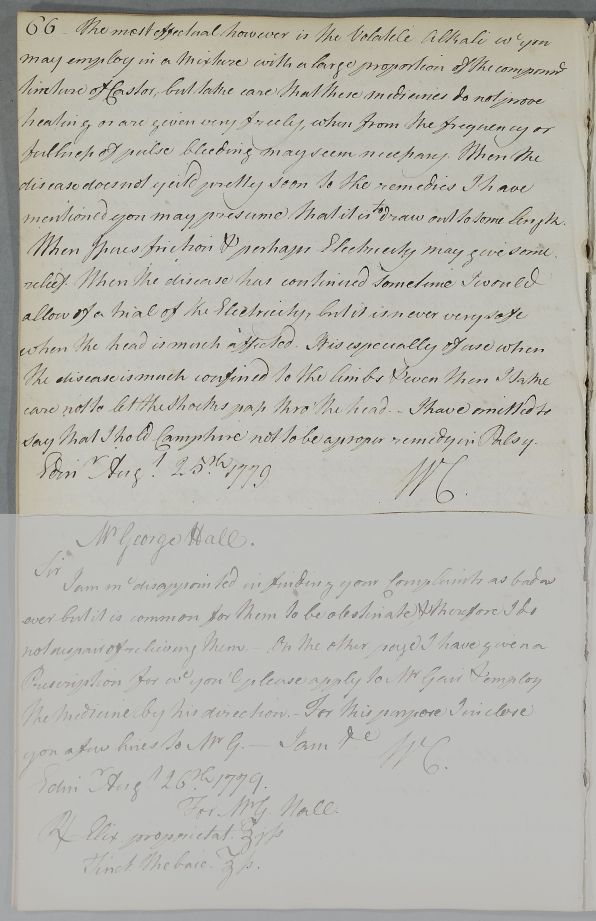 66 - The most effectual however is the Volatile Alkali wc you
may employ in a mixture with a large proportion of the compound
tincture of Castor, but take care that these medicines do not prove
heating or are given very freely, when from the frequency or
fullness of pulse bleeding may seem necessary. When the
disease does not yeild pretty soon to the remedies I have
mentioned you may presume that it is to draw out to some length.
When Issues friction & perhaps Electricity may give some
relief. When the disease has continued sometime I would
allow of a trial of the Electricity, but it is never very safe
when the head is much affected. It is especially of use when
the disease is much confined to the limbs & even then I take
care not to let the shocks pass thro' the head. - I have omitted to
say that I hold Camphire not to be a proper remedy in Palsy.
Edinr Augt 25th 1779 WC.
Mr George Hall.
Sir
I am mc disappointed in finding your Complaints as bad as
ever but it is common for them to be obstinate & therefore I do
not dispair of relieving them. - On the other page I have given a
Prescription for wc you'l please apply to Mr Gair & employ
the medicine by his direction. - For this purpose I inclose
you a few lines to Mr G. - I am &c WC.
Edinr Augt 26th 1779.
For Mr G. Hall.
℞ Elix. proprietat. ʒ
Tinct. Thebaic. ʒ